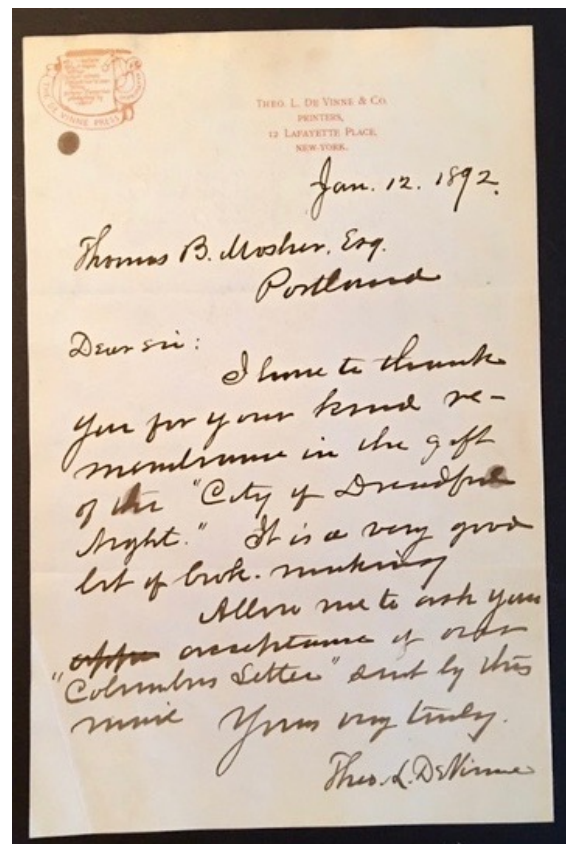 THE DE VINNE PRESS
THEO. L. DE VINNE & CO.
PRINTERS,
12 LAFAYETTE PLACE,
NEW-YORK.
Jan. 12. 1892.
Thomas B. Mosher, Esq.
Portland
Dear Sir:
I have to thank
you for your kind re-
membrance in the gift
of the "City of Dreadful
Night." It is a very good
bit of book-making
Allow me to ask your
acceptance of our
"Columbus Letter" sent by this
mail Yours very truly.
Theo. L. De Vinne